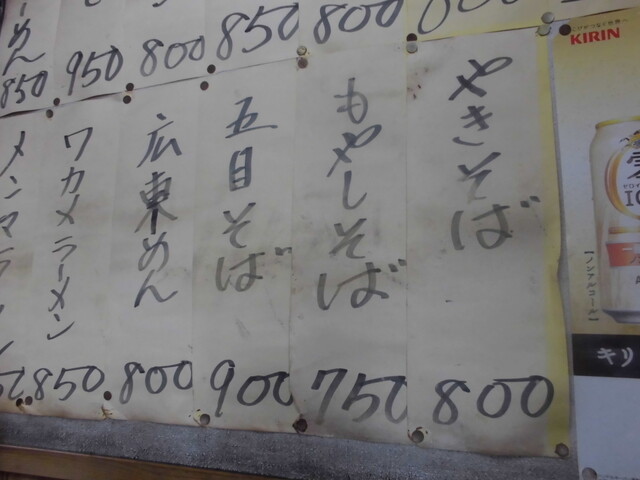 やきそば
800
もやしそば
750
五目そば
900
広東めん
800
ワカメラーメン
850
メンマラーメン
800
850
800
950
めん
850
KIRIN
【ノンアルコール】
キリ